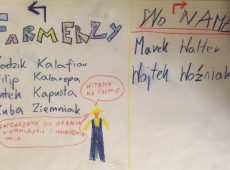 FARMERZY
Kalafior
Filip Kalarepa
Kapusta
Kuba Ziemniak
WITAMY
NA FARMIE
ZAPRASZAMY DO ORANIA
I
NO NAME
Marek Walter
Wojtek Woźniak